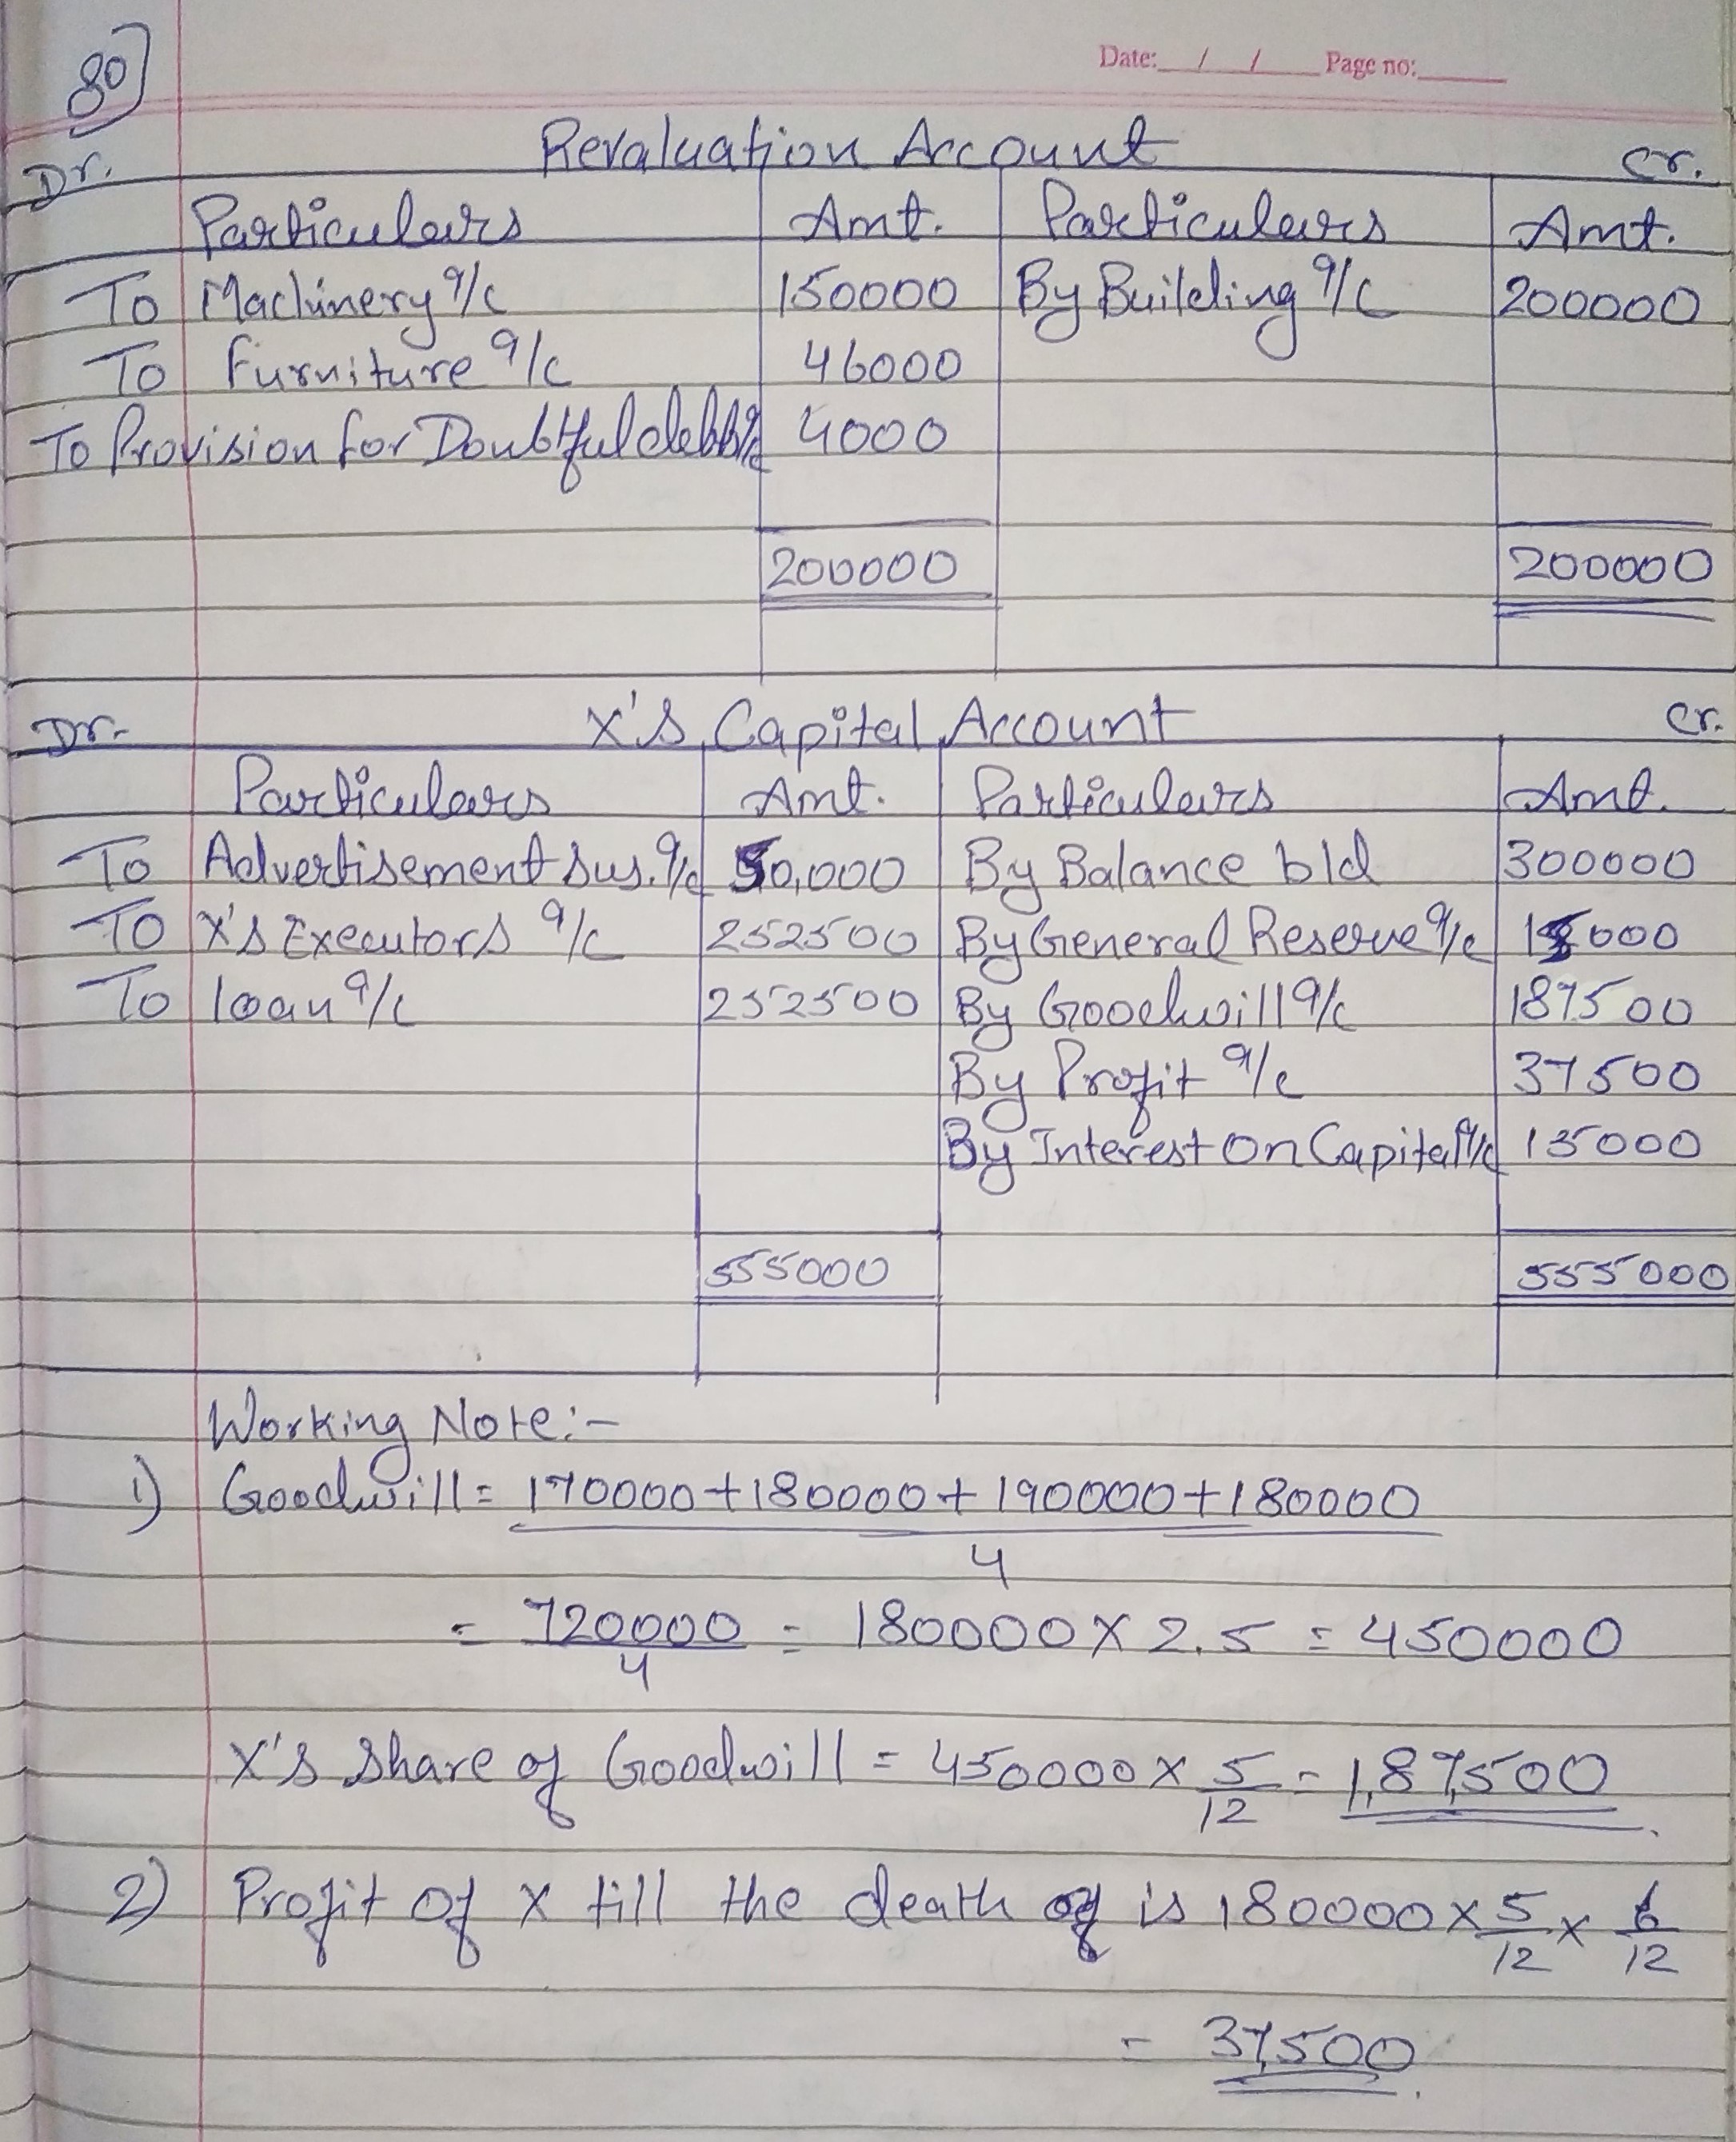 80)
Date: / / Page no:
Revaluation Account
Dr. Cr.
Particulars Amt. Particulars Amt.
To Machinery a/c 150000 By Building a/c 200000
To Furniture a/c 46000
To Provision for Doubtful debts a/c 4000
200000 200000
Dr. X's Capital Account Cr.
Particulars Amt. Particulars Amt.
To Advertisement Sus. a/c 50,000 By Balance b/d 300000
To X's Executors a/c 252500 By General Reserve a/c 15000
To loan a/c 252500 By Goodwill a/c 187500
By Profit a/c 37500
By Interest on Capital a/c 15000
555000 555000
Working Note:-
1) Goodwill = 170000+180000+190000+180000
4
= 720000/4 = 180000 X 2.5 = 450000
X's Share of Goodwill = 450000 X 5/12 = 1,87,500
2) Profit of X till the death of is 180000 X 5/12 X 6/12
= 37,500